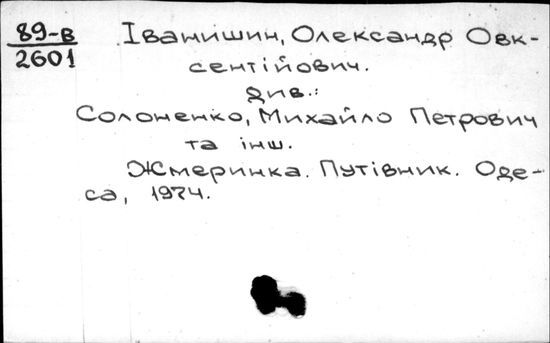 89-в
2601
Іванишин, Олександр Овк-
сентійович.
див.:
Солоненко, Михайло Петрович
та інш.
Жмеринка. Путівник. Оде-
са, 1974.